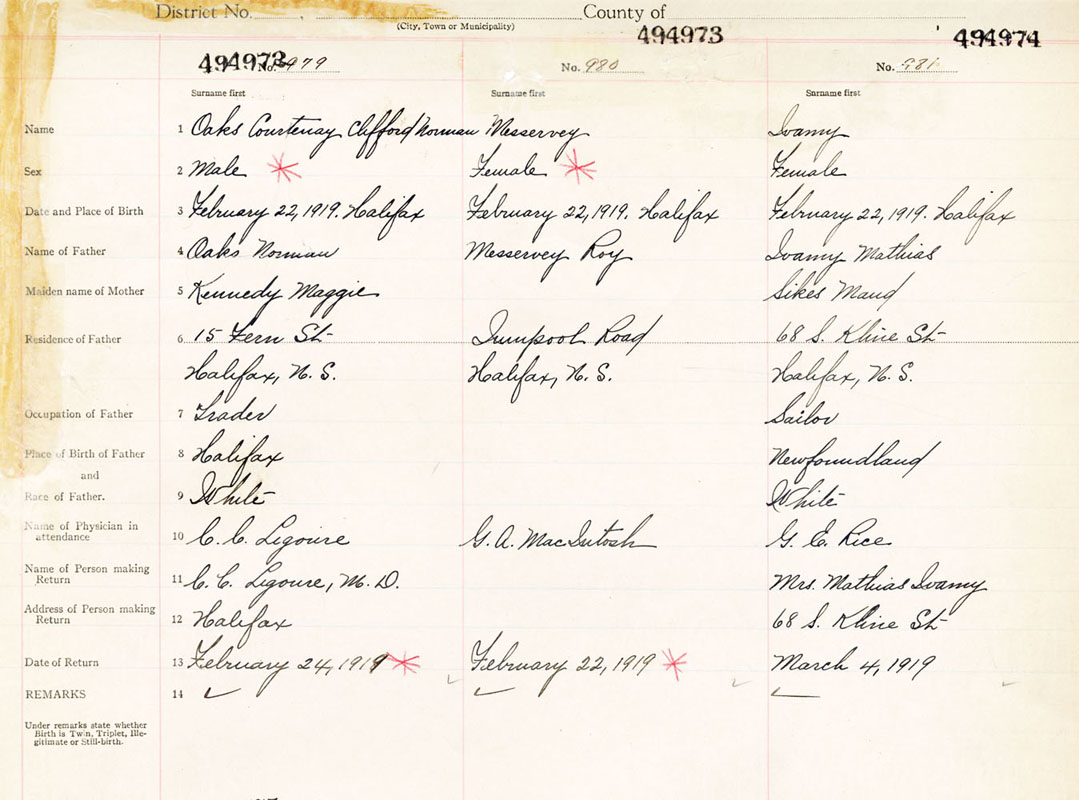 District No. County of
(City, Town or Municipality)
494972 494973 494974
No. 979 No. 980 No. 981
Surname first Surname first Surname first
Name 1 Oaks Courtenay Clifford Norman Messervey Ivamy
Sex 2 Male Female Female
Date and Place of Birth 3 February 22, 1919. Halifax February 22, 1919. Halifax February 22, 1919. Halifax
Name of Father 4 Oaks Norman Messervey Roy Ivamy Mathias
Maiden name of Mother 5 Kennedy Maggie Sikes Maud
Residence of Father 6 15 Fern St Quinpool Road 68 S. Kline St
Halifax, N. S. Halifax, N. S. Halifax, N. S.
Occupation of Father 7 Trader Sailor
Place of Birth of Father 8 Halifax Newfoundland
and
Race of Father. 9 White White
Name of Physician in
attendance 10 C. C. Ligoure G. A. MacIntosh G. E. Rice
Name of Person making
Return 11 C. C. Ligoure, M. D. Mrs. Mathias Ivamy
Address of Person making
Return 12 Halifax 68 S. Kline St
Date of Return 13 February 24, 1919 February 22, 1919 March 4, 1919
REMARKS 14
Under remarks state whether
Birth is Twin, Triplet, Ille-
gitimate or Still-birth.